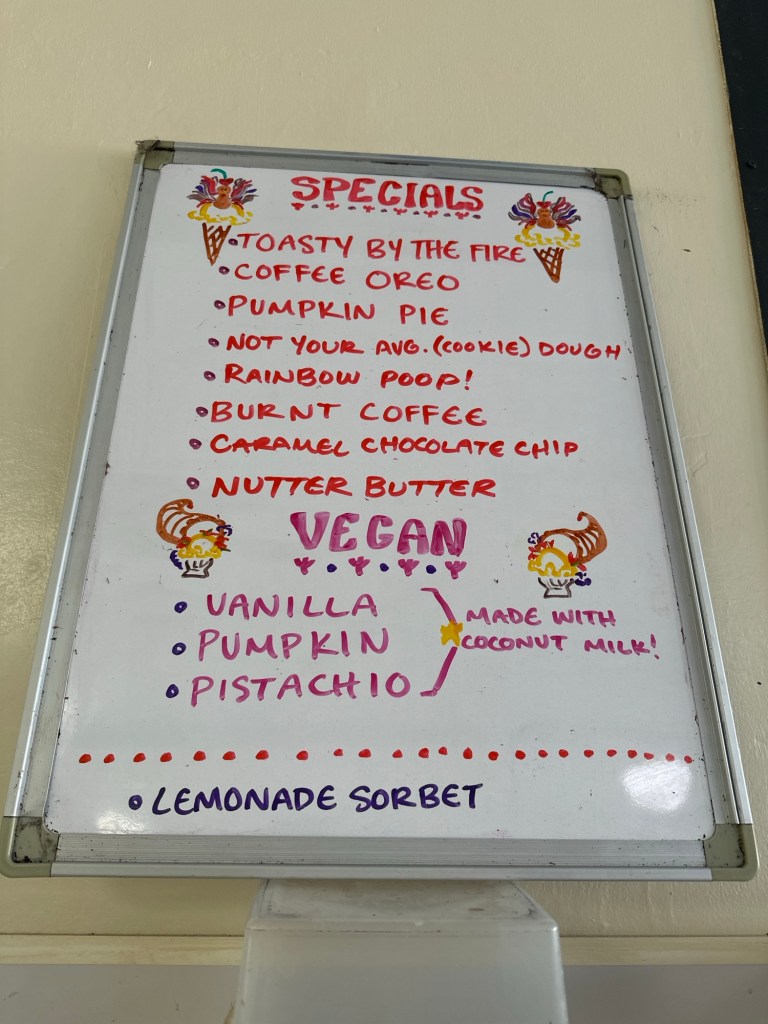 SPECIALS
• TOASTY BY THE FIRE
• COFFEE OREO
• PUMPKIN PIE
• NOT YOUR AVG. (COOKIE) DOUGH
• RAINBOW POOP!
• BURNT COFFEE
• CARAMEL CHOCOLATE CHIP
• NUTTER BUTTER
VEGAN
• VANILLA
• PUMPKIN
• PISTACHIO
MADE WITH
COCONUT MILK!
• LEMONADE SORBET